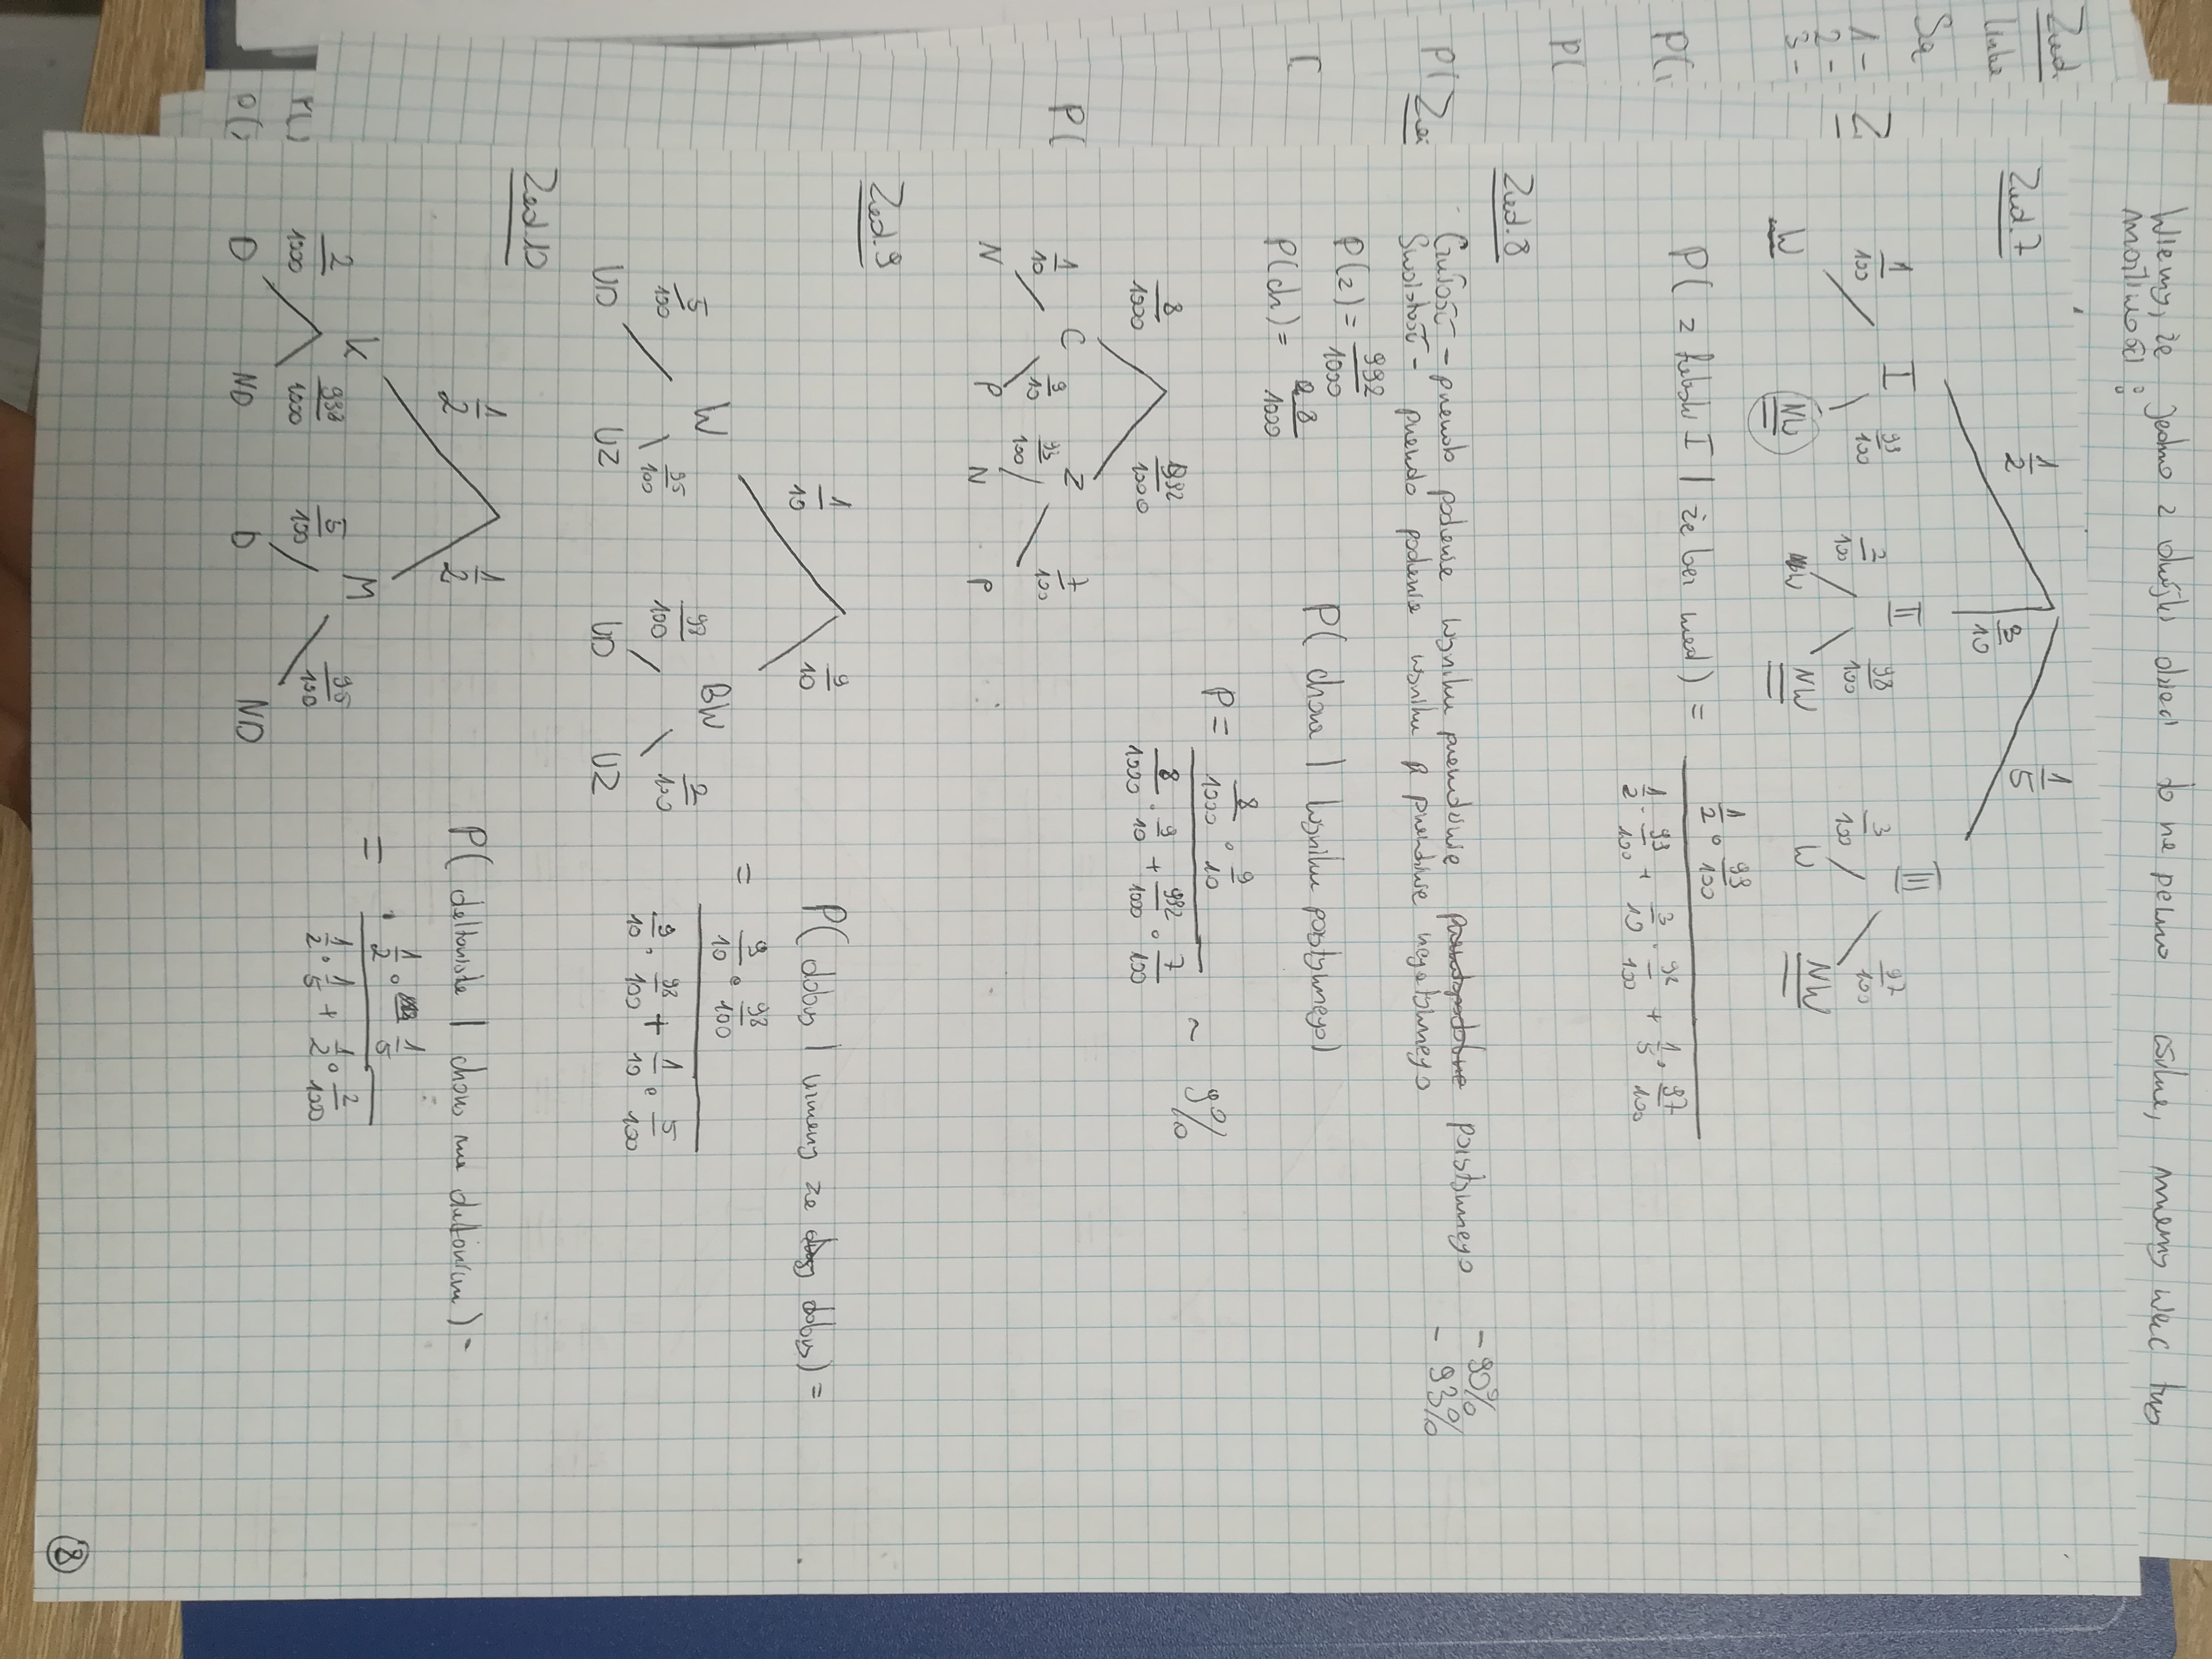 Wiemy, że jedno z dwójki dzieci to na pewno córka, mamy więc trzy
możliwości:
Zad. 7
1/2 3/10 1/5
I II III
1/100 99/100 2/100 98/100 3/100 97/100
W NW W NW W NW
P( z fabryki I | że bez wad) =
1/2 · 99/100
1/2 · 99/100 + 3/10 · 98/100 + 1/5 · 97/100
Zad. 8
Czułość - prawdo podanie wyniku prawdziwie pozytywnego - 90%
Swoistość - prawdo podania wyniku prawdziwie negatywnego - 93%
P(z) = 992/1000
P(ch) = 8/1000
P( chora | wyniku pozytywnego)
8/1000 992/1000
C Z
1/10 9/10 93/100 7/100
N P N P
P = 8/1000 · 9/10
8/1000 · 9/10 + 992/1000 · 7/100
~ 9%
Zad. 9
1/10 9/10
W BW
5/100 95/100 98/100 2/100
UD UZ UD UZ
P( dobry | uznany za dobry) =
= 9/10 · 98/100
9/10 · 98/100 + 1/10 · 5/100
Zad. 10
1/2 1/2
K M
2/1000 998/1000 5/100 95/100
D ND D ND
P( daltonista | chory na daltonizm) =
= 1/2 · 1/5
1/2 · 1/5 + 1/2 · 2/1000
8
Zad.
Są
1 -
2 -
3 -
P(
P(
P(
P(
P(